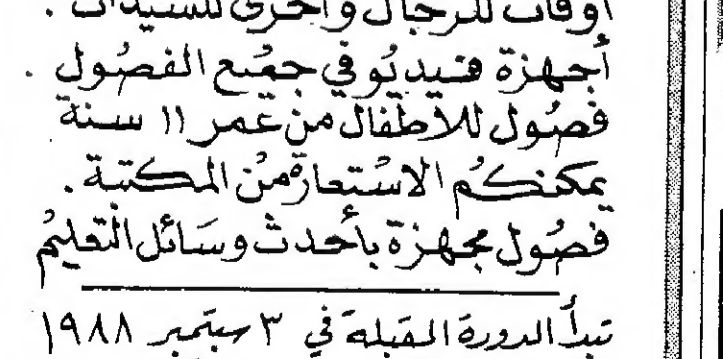 أوقات للرجال وأخرى للسيدات .
أجهزة فيديو في جميع الفصول .
فصول للأطفال من عمر ١١ سنة
يمكنكم الاستعارة من المكتبة .
فصول مجهزة بأحدث وسائل التعليم
تبدأ الدورة المقبلة في ٣ سبتمبر ١٩٨٨